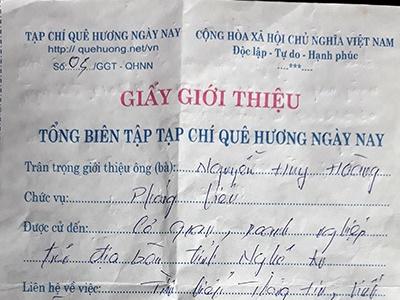 TẠP CHÍ QUÊ HƯƠNG NGÀY NAY
http:// quehuong.net/vn
Số: 04 /GGT - QHNN
CỘNG HÒA XÃ HỘI CHỦ NGHĨA VIỆT NAM
Độc lập - Tự do - Hạnh phúc
....***....
GIẤY GIỚI THIỆU
TỔNG BIÊN TẬP TẠP CHÍ QUÊ HƯƠNG NGÀY NAY
Trân trọng giới thiệu ông (bà): Nguyễn Huy Hoàng
Chức vụ: Phóng viên
Được cử đến: Cơ quan, doanh nghiệp
trên địa bàn tỉnh Nghệ An
Liên hệ về việc: thông tin, viết